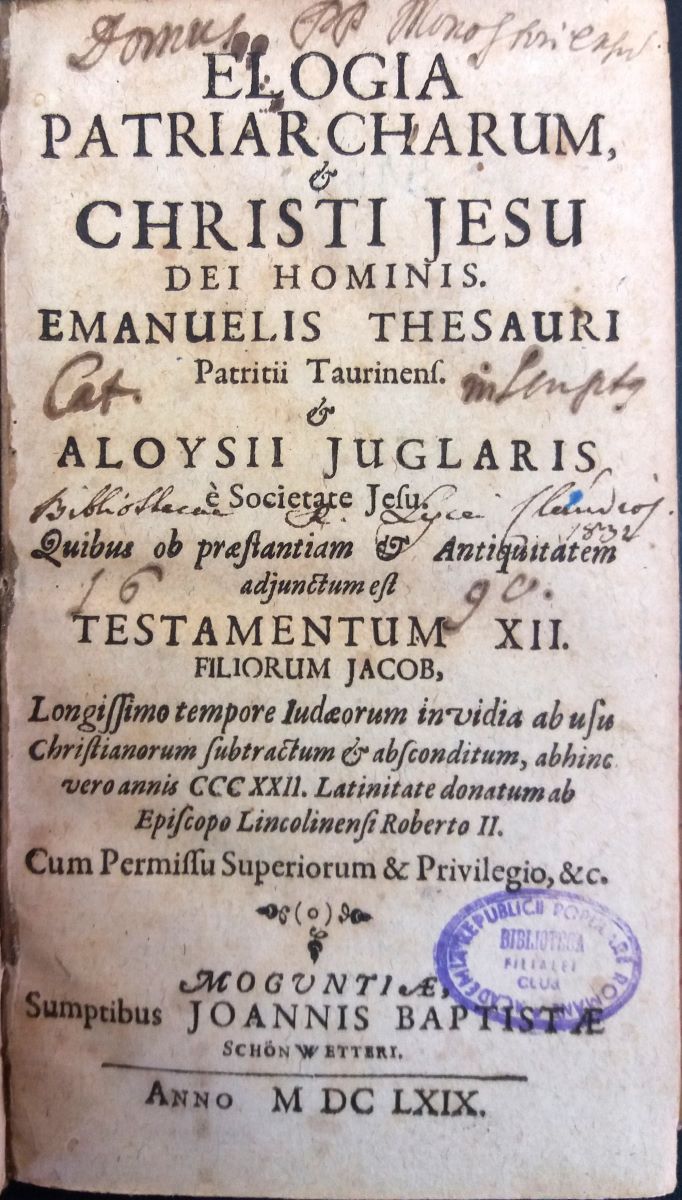 Domus PP Monostoriensis
ELOGIA
PATRIARCHARUM,
&
CHRISTI JESU
DEI HOMINIS.
EMANUELIS THESAURI
Patritii Taurinenſ.
Cat. inscriptq
&
ALOYSII JUGLARIS
è Societate Jeſu.
Bibliothecae R. Lycei Claudiop.
1832
Quibus ob præſtantiam & Antiquitatem
adjunctum eſt
16 90.
TESTAMENTUM XII.
FILIORUM JACOB,
Longiſſimo tempore Iudæorum invidia ab uſu
Chriſtianorum ſubtractum & abſconditum, abhinc
vero annis CCCXXII. Latinitate donatum ab
Epiſcopo Lincolinenſi Roberto II.
Cum Permiſſu Superiorum & Privilegio, &c.
(o)
MOGVNTIÆ,
Sumptibus JOANNIS BAPTISTÆ
SCHÖNWETTERI.
ANNO M DC LXIX.
ACADEMIA REPUBLICII POPULARE ROMANE
BIBLIOTECA
FILIALEI
CLUJ